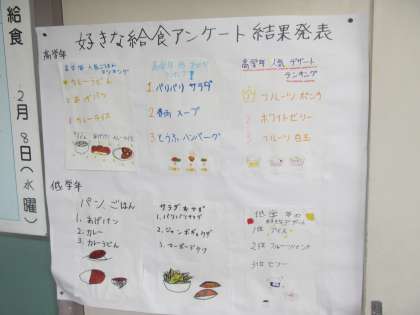 給食
2月8日(水曜)
好きな給食アンケート結果発表
高学年
高学年 人気ごはん
ランキング
1 カレーうどん
2 あげパン
3 カレーライス
あげパン カレーライス
高学年
1. パリパリ サラダ
2. 春雨 スープ
3. とうふ ハンバーグ
高学年 人気 デザート
ランキング
1 フルーツポンチ
2 ホワイトゼリー
3 フルーツ白玉
低学年
パン、ごはん
1. あげパン
2. カレー
3. カレーうどん
サラダ おかず
1. パリパリサラダ
2. ジャンボギョウザ
3. マーボー
低学年の
デザート
1位 アイス
2位 フルーツポンチ
3位 ゼリー